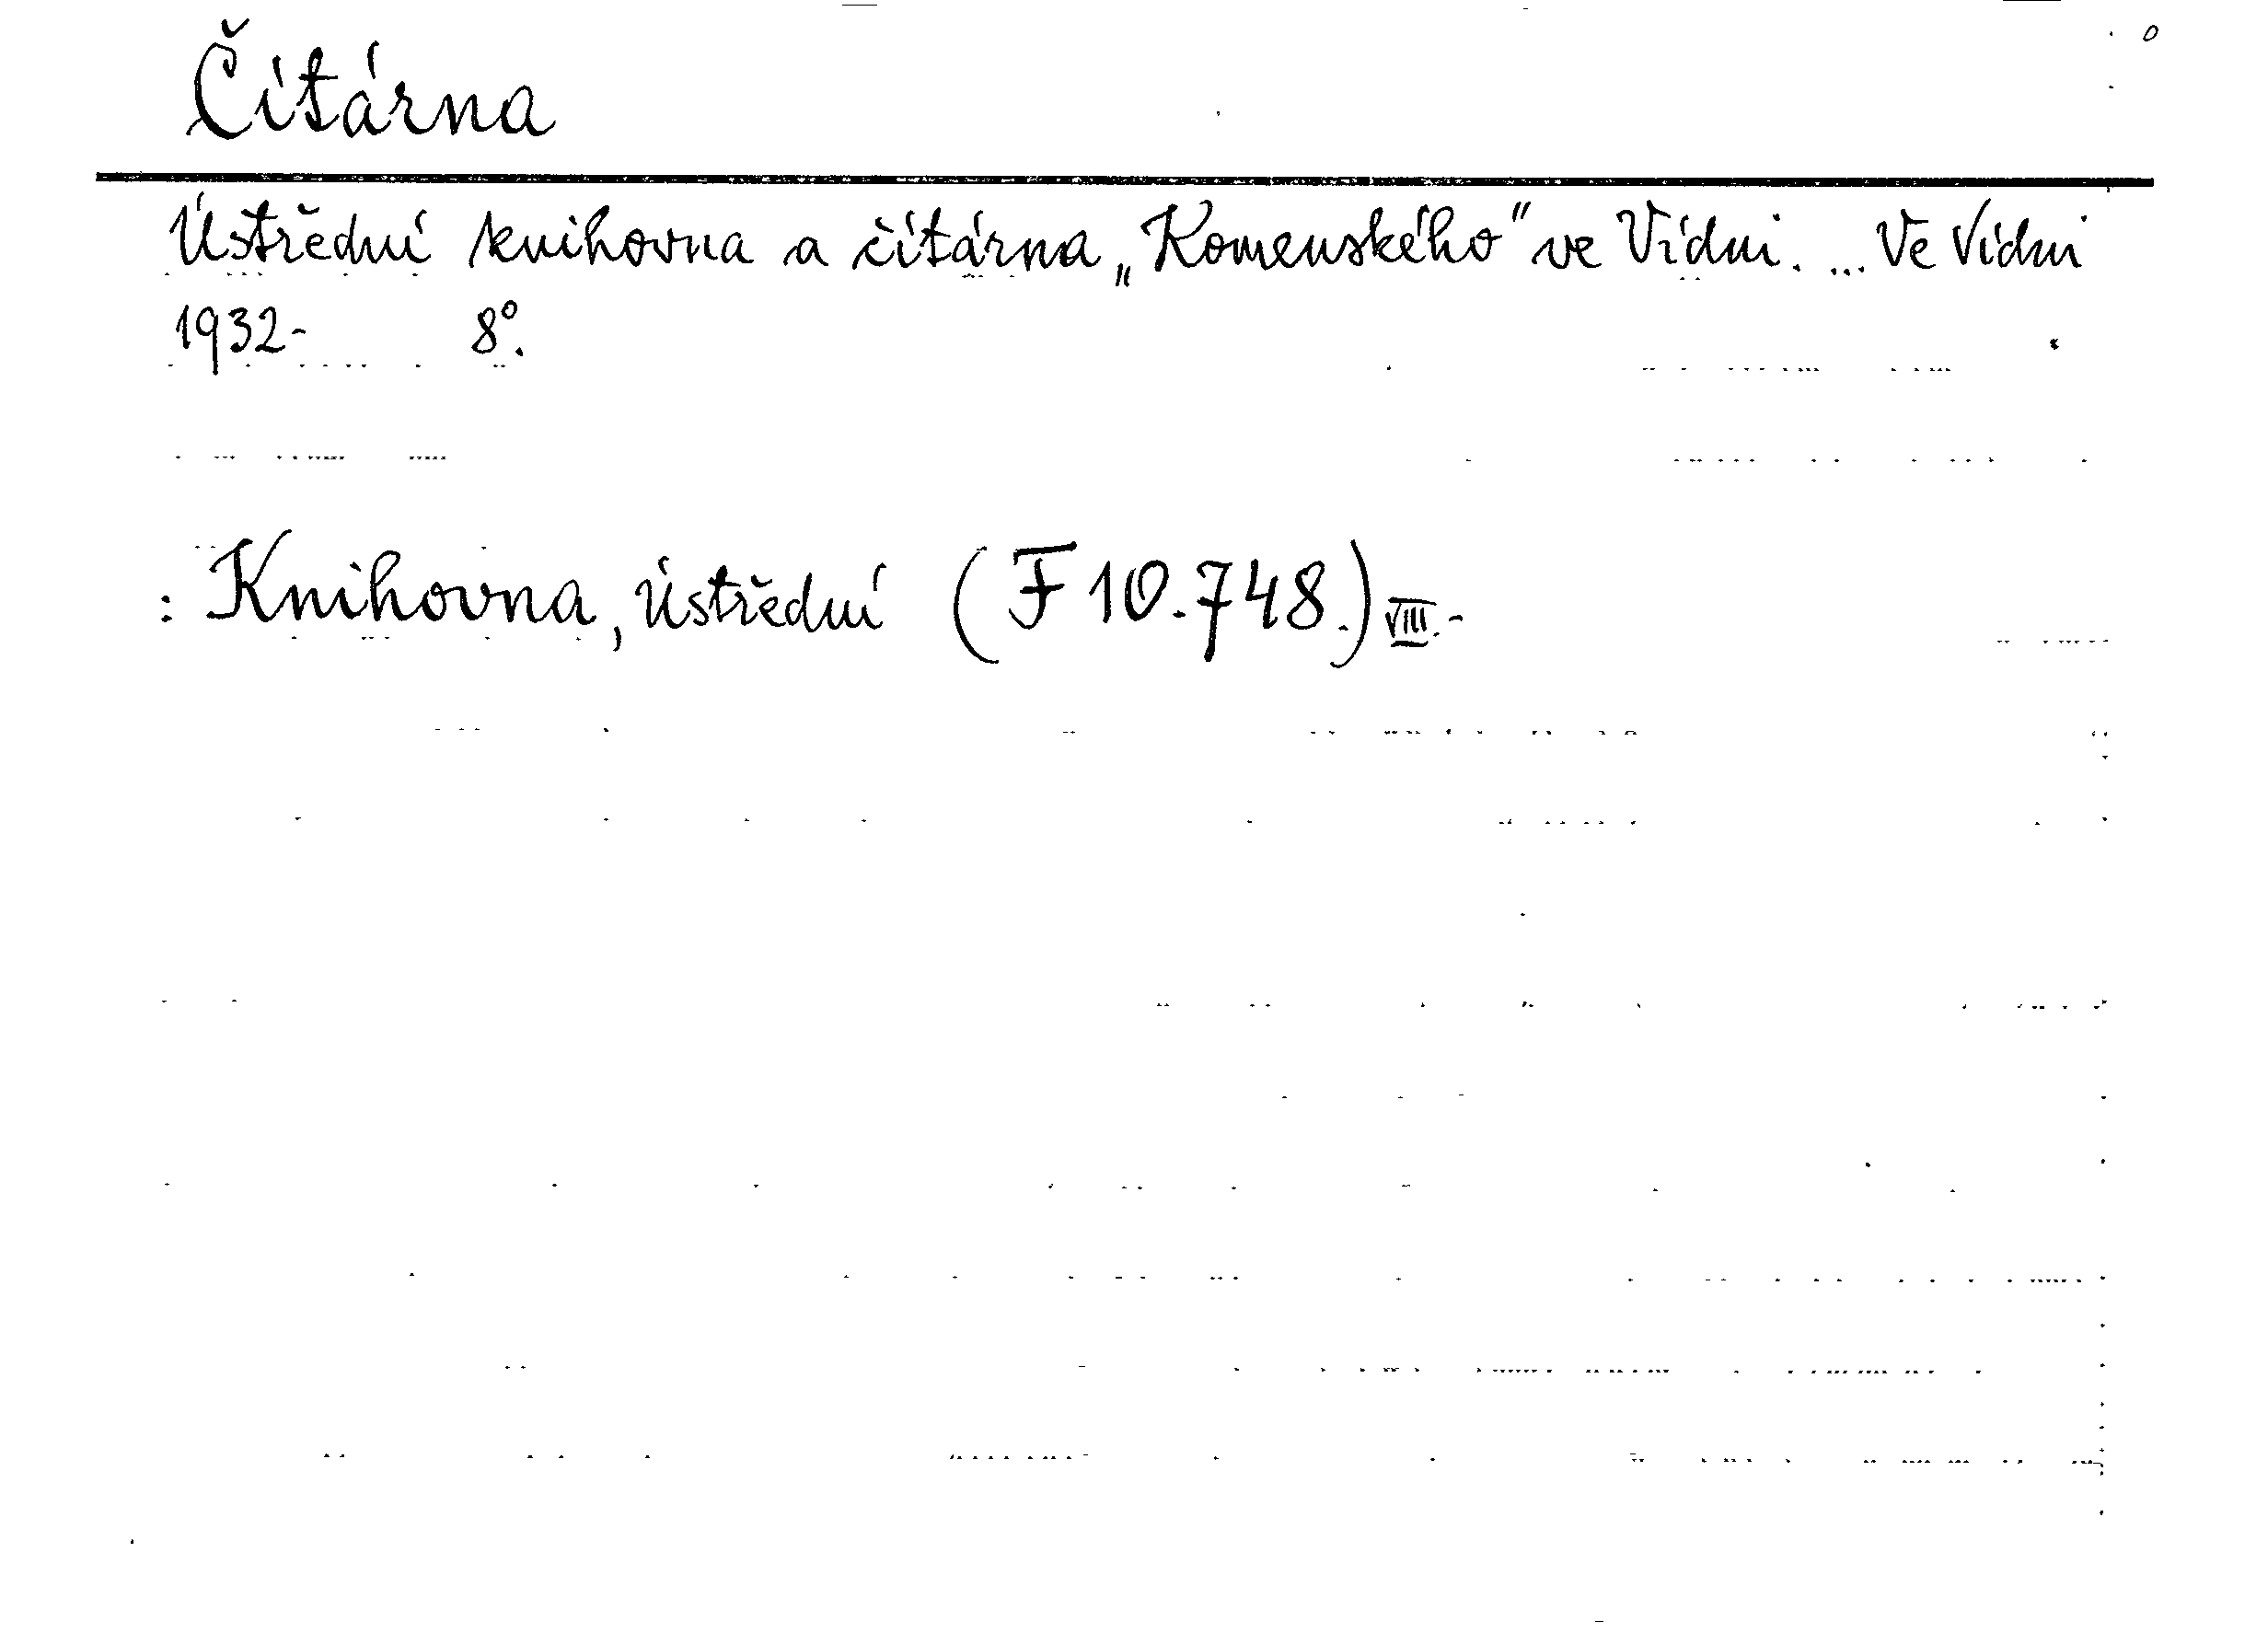 Čítárna
Ústřední knihovna a čítárna „Komenského" ve Vídni. ... Ve Vídni
1932- 8°.
: Knihovna, ústřední (F 10.748.) VIII.-